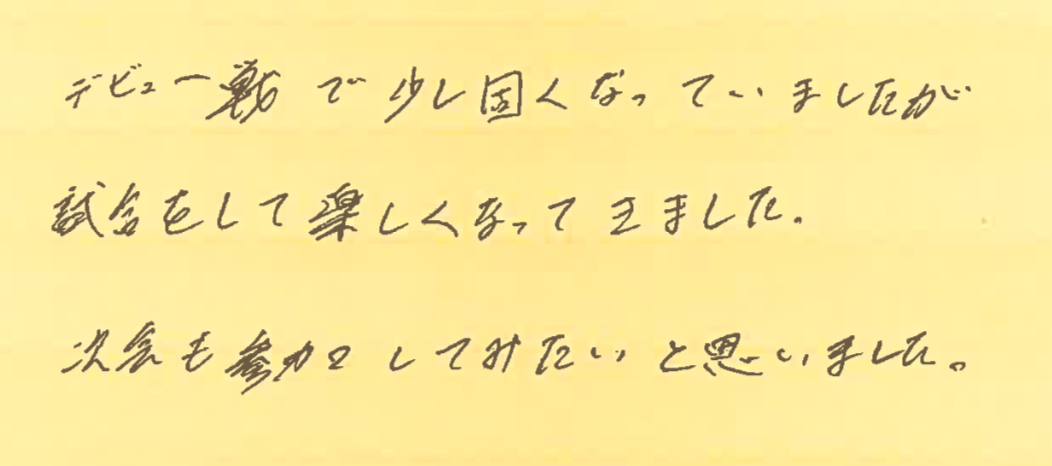 デビュー戦で少し固くなっていましたが
試合をして楽しくなってきました.
次会も参加してみたいと思いました。